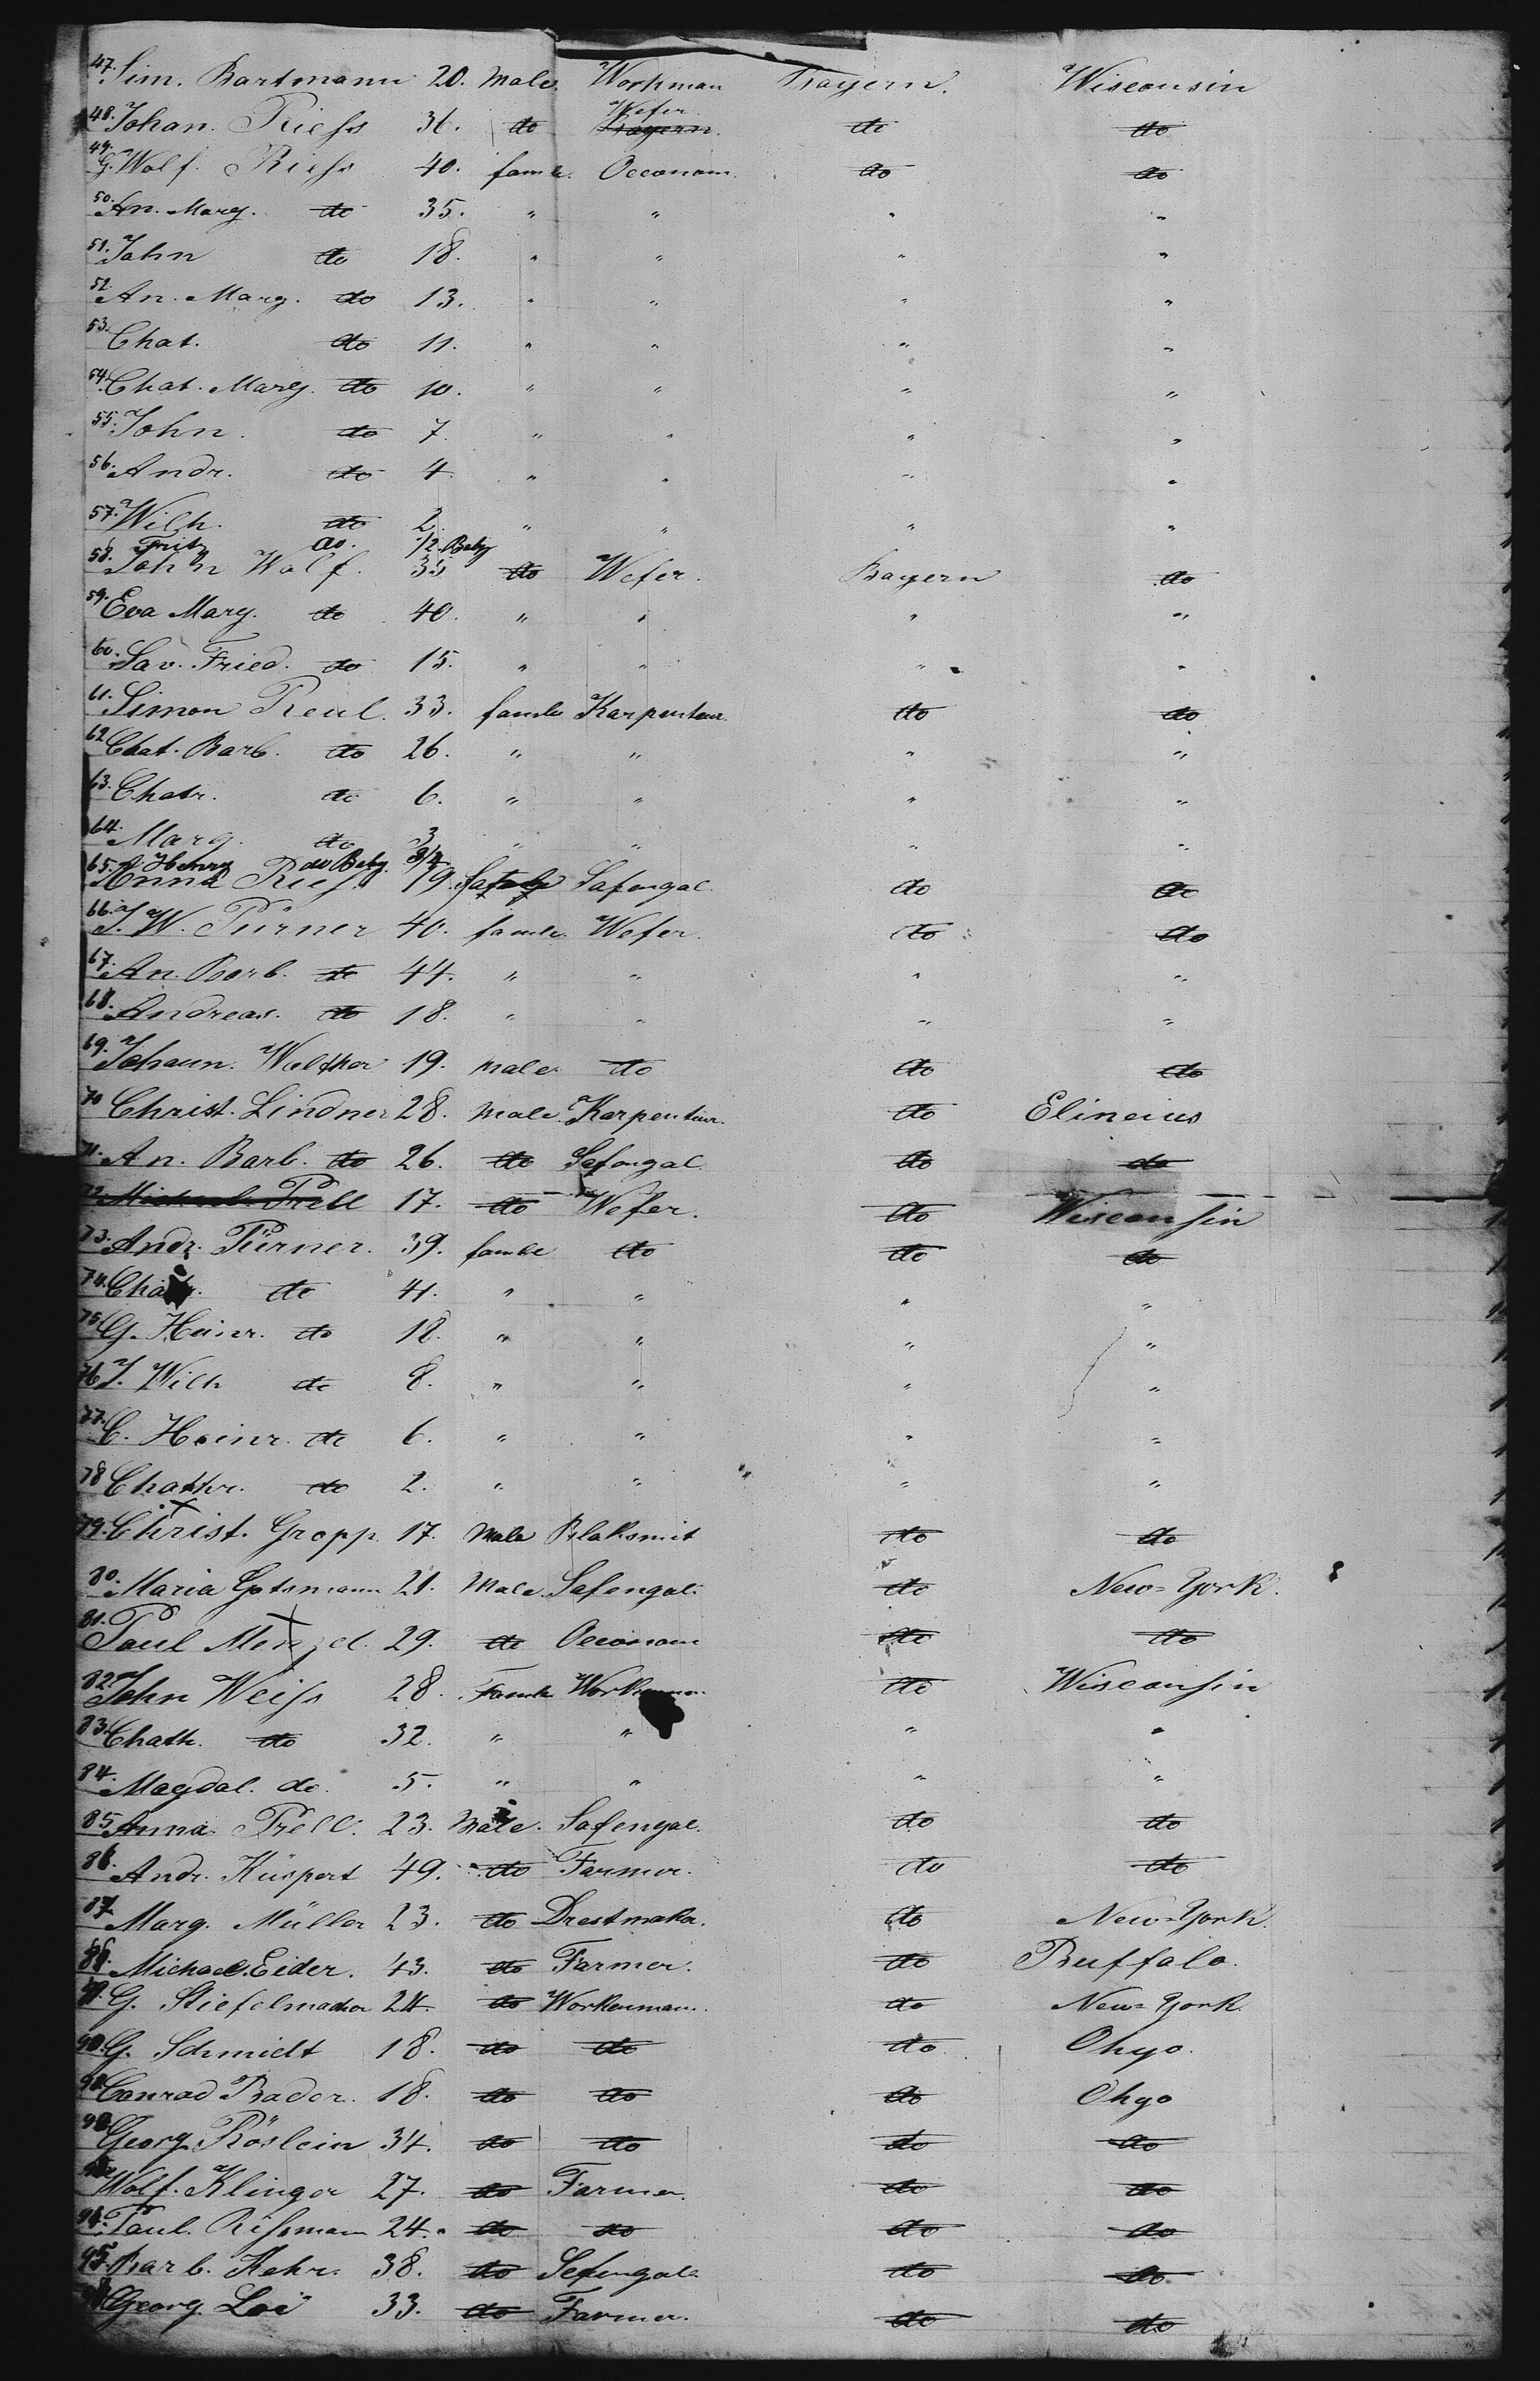 47. Sim. Bartmann 20. Male. Workman Bayern. Wisconsin
48. Johan. Riess 36. do Wefer. Bayern. do do
49. G. Wolf. Riess 40. famle. Oeconom. do do
50. An. Marg. do 35. " " " "
51. John do 18. " " " "
52. An. Marg. do 13. " " " "
53. Chat. do 11. " " " "
54. Chat. Marg. do 10. " " " "
55. John. do 7. " " " "
56. Andr. do 4. " " " "
57. Wilh. do 2. " " " "
Fritz do. 1/2. Baby
58. John Wolf. 35 do Wefer. Bayern do
59. Eva Marg. do 40. " " " "
60. Sav. Fried. do 15. " " " "
61. Simon Reul. 33. famle Karpenteur. do do
62 Chat. Barb. do 26. " " " "
63. Chatr. do 6. " " " "
64. Marg. do 3 " " " "
A. Henry do Baby. 3/4
65. Anna Riess 19. Safengal. do do
66. J. W. Pürner 40. famle. Wefer. do do
67. An. Barb. do 44. " " " "
68. Andreas. do 18. " " " "
69. Johann. Walther 19. Male do do do
70 Christ. Lindner 28. Male. Karpenteur. do Elineius
71. An. Barb. do 26. do Sefengal. do do
72. Michael Prell 17. do Wefer. do Wisconsin
73. Andr. Pürner. 39. famle do do do
74. Chatr. do 41. " " " "
75 G. Heinr. do 18. " " " "
76 J. Wilh do 8. " " " "
77. C. Heinr. do 6. " " " "
78 Chathr. do 2. " " " "
79. Christ. Gropp. 17. Male Blaksmit do do
80. Maria Gotsmann 21. Male. Safengal. do New-York.
81. Paul Menzel. 29. do Oeconom do do
82. John Weiss 28. Famle Workenman do Wisconsin
83. Chath. do 32. " " " "
84. Magdal. do. 5. " " " "
85 Anna. Prell. 23. Male. Safengal. do do
86. Andr. Küspert 49. do Farmer. do do
87. Marg. Müller 23. do Drestmaker. do New-York.
88. Michael. Eider. 43. do Farmer. do Buffalo.
89. G. Stiefelmacher 24. do Workenman. do New-York.
90. G. Schmidt 18. do do do Ohyo.
91. Conrad Bader. 18. do do do Ohyo
92. Georg. Röslein 34. do do do do
Wolf. Klinger 27. do Farmer. do do
94. Paul. Rissmann 24. do do do do
95. Barb. Kehr. 38. do Sefengal. do do
Georg. Loi 33. do Farmer. do do